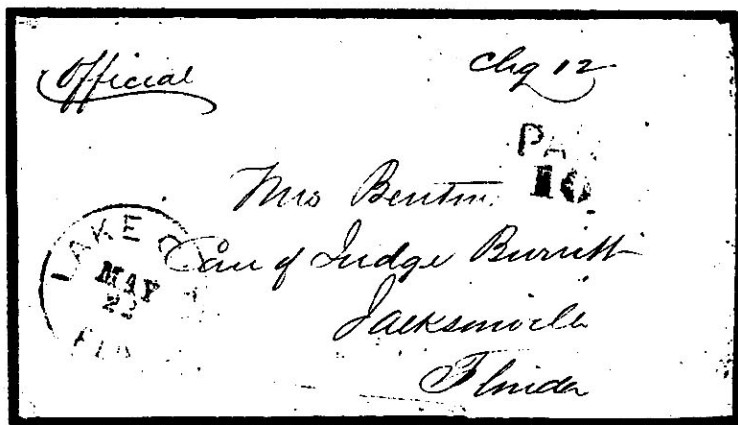 Official
Chg 12
PAI
10
Mrs Benton
Care of Judge Burritt
Jacksonville
Florida
LAKE C
MAY
22
FLA